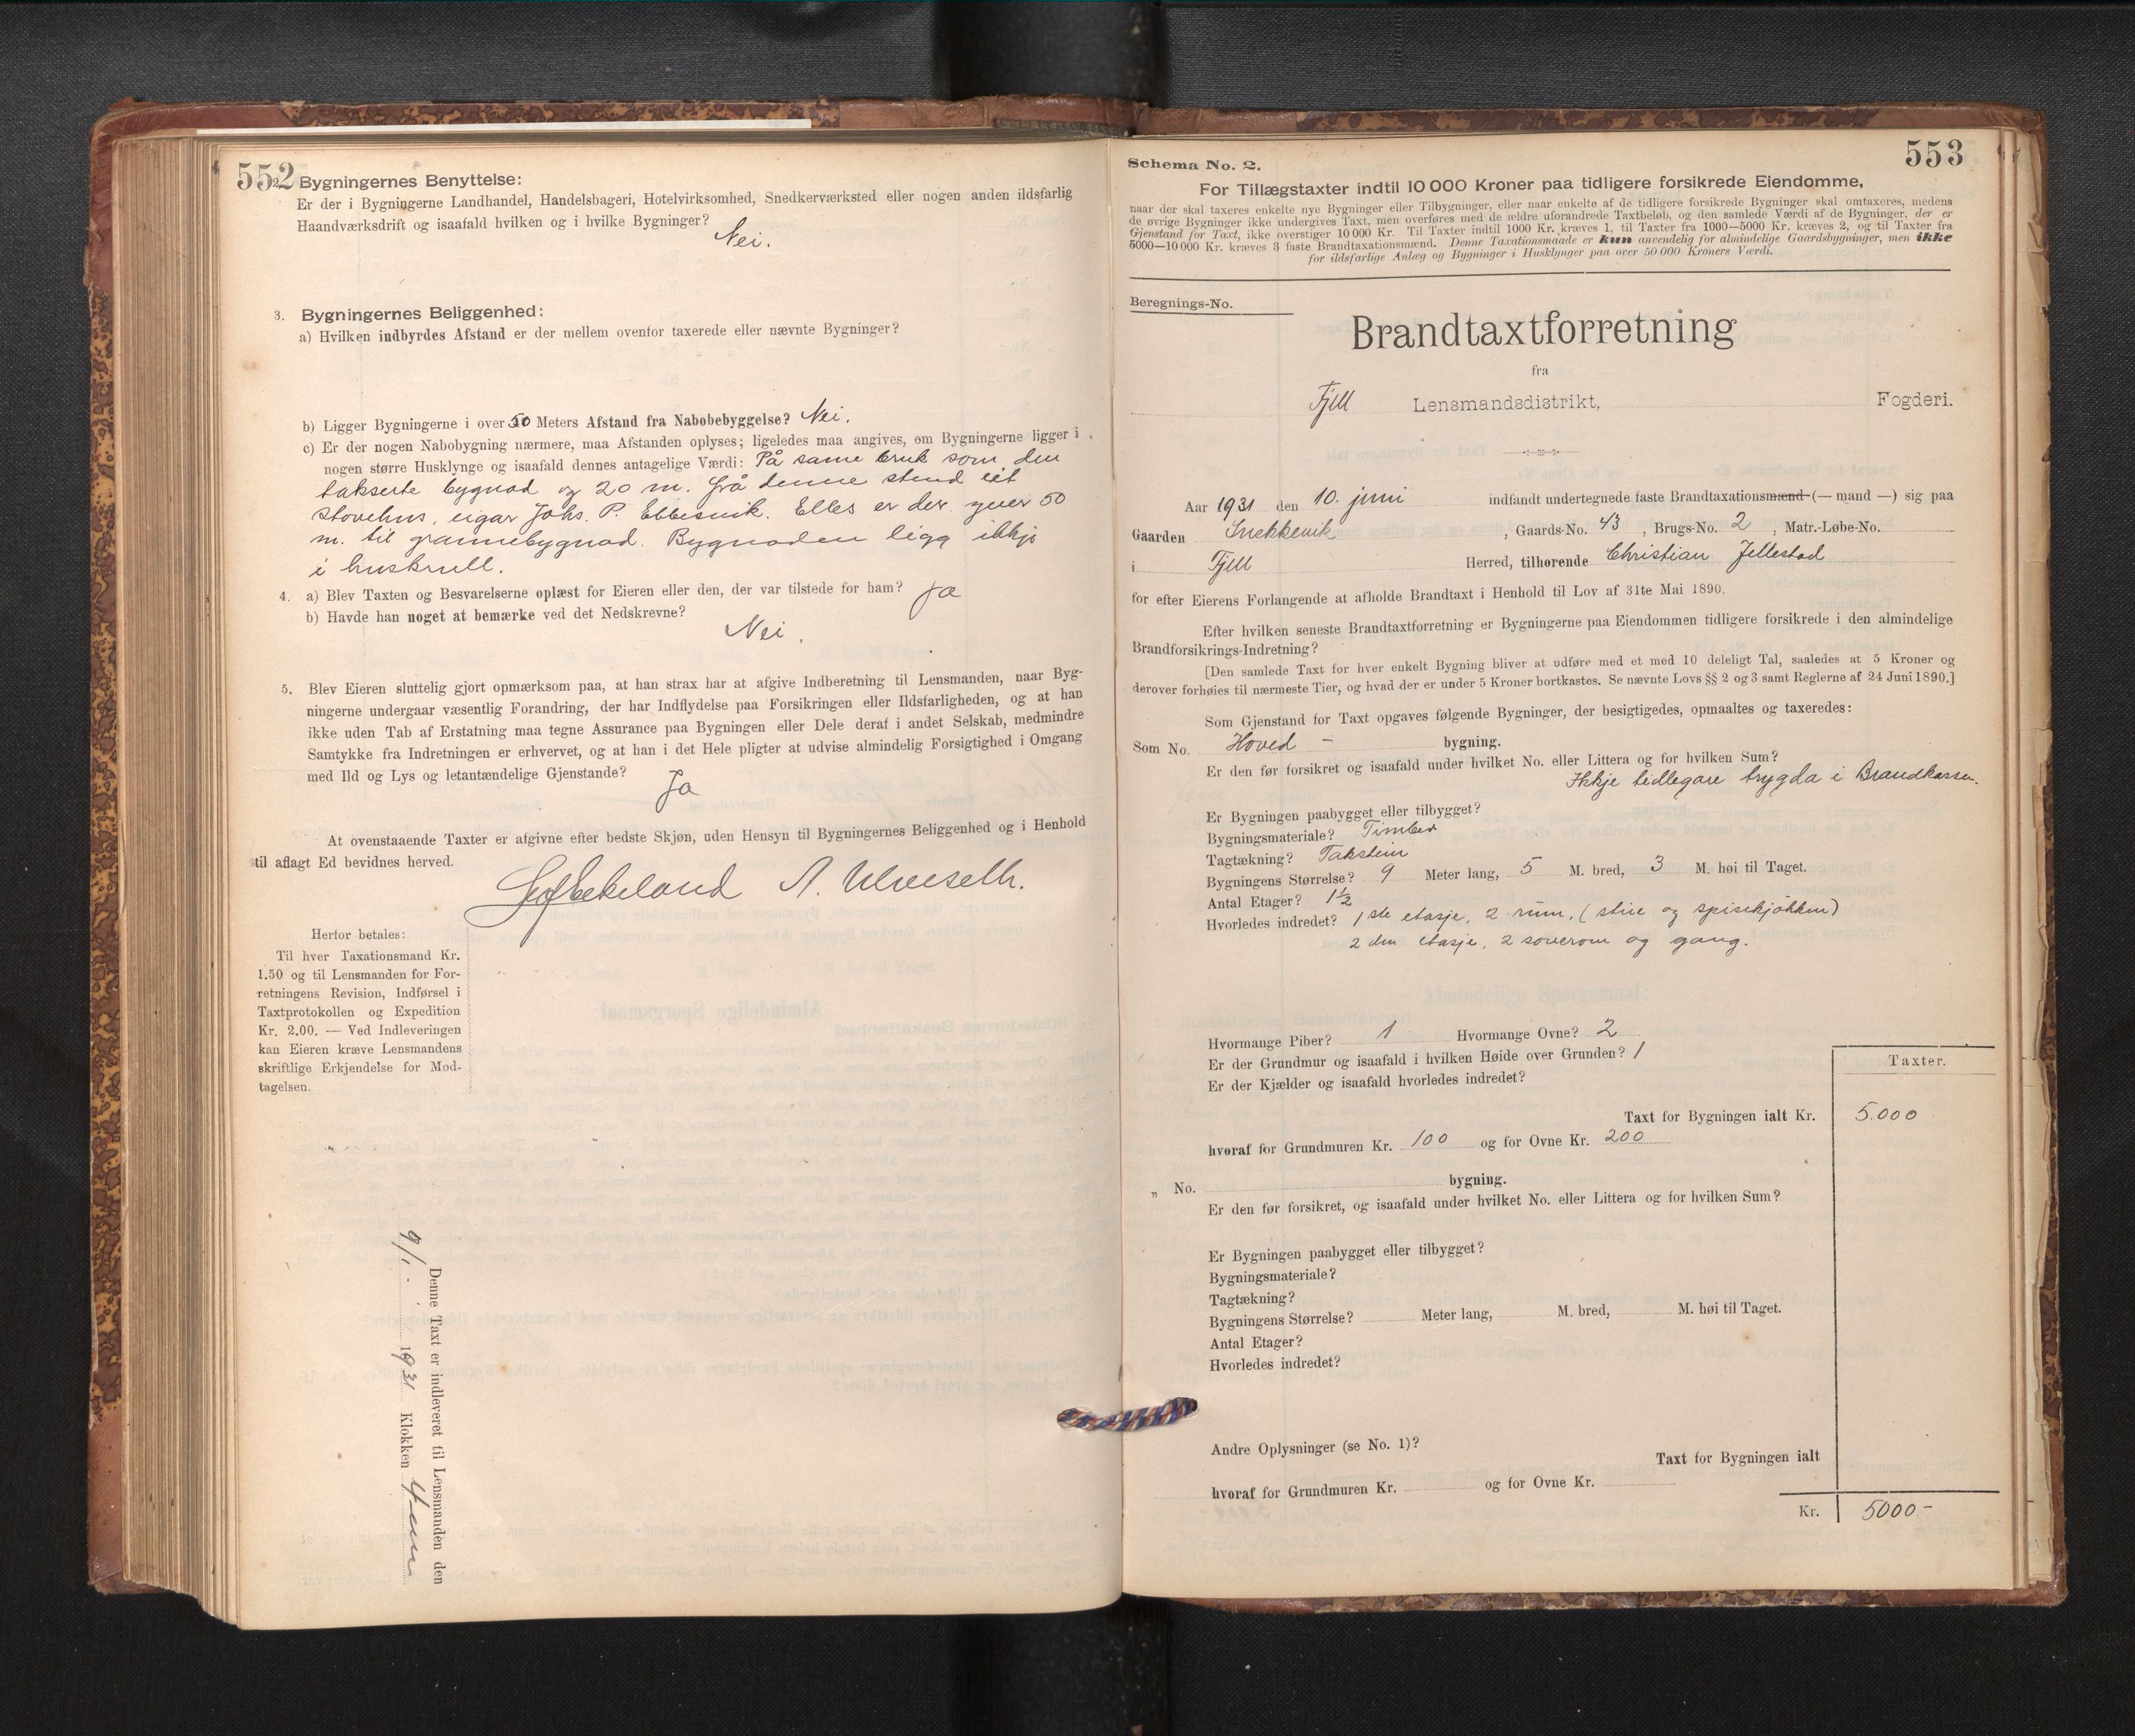 552
2. Bygningernes Benyttelse:
Er der i Bygningerne Landhandel, Handelsbageri, Hotelvirksomhed, Snedkerværksted eller nogen anden ildsfarlig
Haandværksdrift og isaafald hvilken og i hvilke Bygninger?
Nei.
3. Bygningernes Beliggenhed:
a) Hvilken indbyrdes Afstand er der mellem ovenfor taxerede eller nævnte Bygninger?
b) Ligger Bygningerne i over 50 Meters Afstand fra Nabobebyggelse? Nei.
c) Er der nogen Nabobygning nærmere, maa Afstanden oplyses; ligeledes maa angives, om Bygningerne ligger i
nogen større Husklynge og isaafald dennes antagelige Værdi: På same bruk som den
takserte bygnad og 20 m. frå denne stend eit
stovehus, eigar Johs. P. Ebbesvik. Elles er der yver 50
m. til grannebygnad. Bygnaden ligg ikkje
i huskrull.
4. a) Blev Taxten og Besvarelserne oplæst for Eieren eller den, der var tilstede for ham? Ja
b) Havde han noget at bemærke ved det Nedskrevne?
Nei.
5. Blev Eieren sluttelig gjort opmærksom paa, at han strax har at afgive Indberetning til Lensmanden, naar Byg-
ningerne undergaar væsentlig Forandring, der har Indflydelse paa Forsikringen eller Ildsfarligheden, og at han
ikke uden Tab af Erstatning maa tegne Assurance paa Bygningen eller Dele deraf i andet Selskab, medmindre
Samtykke fra Indretningen er erhvervet, og at han i det Hele pligter at udvise almindelig Forsigtighed i Omgang
med Ild og Lys og letantændelige Gjenstande?
Ja
At ovenstaaende Taxter er afgivne efter bedste Skjøn, uden Hensyn til Bygningernes Beliggenhed og i Henhold
til aflagt Ed bevidnes herved.
A. Ulveseth.
Herfor betales:
Til hver Taxationsmand Kr.
1.50 og til Lensmanden for For-
retningens Revision, Indførsel i
Taxtprotokollen og Expedition
Kr. 2.00. — Ved Indleveringen
kan Eieren kræve Lensmandens
skriftlige Erkjendelse for Mod-
tagelsen.
Denne Taxt er indleveret til Lensmanden den
9/1. 1931 Klokken 4 em
553
Schema No. 2.
For Tillægstaxter indtil 10 000 Kroner paa tidligere forsikrede Eiendomme,
naar der skal taxeres enkelte nye Bygninger eller Tilbygninger, eller naar enkelte af de tidligere forsikrede Bygninger skal omtaxeres, medens
de øvrige Bygninger ikke undergives Taxt, men overføres med de ældre uforandrede Taxtbeløb, og den samlede Værdi af de Bygninger, der er
Gjenstand for Taxt, ikke overstiger 10 000 Kr. Til Taxter indtil 1000 Kr. kræves 1, til Taxter fra 1000—5000 Kr. kræves 2, og til Taxter fra
5000—10 000 Kr. kræves 3 faste Brandtaxationsmænd. Denne Taxationsmaade er kun anvendelig for almindelige Gaardsbygninger, men ikke
for ildsfarlige Anlæg og Bygninger i Husklynger paa over 50 000 Kroners Værdi.
Beregnings-No.
Brandtaxtforretning
fra
Fjell Lensmandsdistrikt, Fogderi.
Aar 1931 den 10. juni indfandt undertegnede faste Brandtaxationsmænd (— mand —) sig paa
Gaarden Snekkevik, Gaards-No. 43, Brugs-No. 2, Matr.-Løbe-No.
i Fjell Herred, tilhørende Christian Jellestad
for efter Eierens Forlangende at afholde Brandtaxt i Henhold til Lov af 31te Mai 1890.
Efter hvilken seneste Brandtaxtforretning er Bygningerne paa Eiendommen tidligere forsikrede i den almindelige
Brandforsikrings-Indretning?
[Den samlede Taxt for hver enkelt Bygning bliver at udføre med et med 10 deleligt Tal, saaledes at 5 Kroner og
derover forhøies til nærmeste Tier, og hvad der er under 5 Kroner bortkastes. Se nævnte Lovs §§ 2 og 3 samt Reglerne af 24 Juni 1890.]
Som Gjenstand for Taxt opgaves følgende Bygninger, der besigtigedes, opmaaltes og taxeredes:
Som No. Hoved - bygning.
Er den før forsikret og isaafald under hvilket No. eller Littera og for hvilken Sum?
Ikkje tidlegare trygda i Brandkassen.
Er Bygningen paabygget eller tilbygget?
Bygningsmateriale? Timber
Tagtækning? Takstein
Bygningens Størrelse? 9 Meter lang, 5 M. bred, 3 M. høi til Taget.
Antal Etager? 1½
Hvorledes indredet? 1ste etasje, 2 rum, (stue og spisekjøkken)
2den etasje, 2 soverom og gang.
Hvormange Piber? 1 Hvormange Ovne? 2
Er der Grundmur og isaafald i hvilken Høide over Grunden? 1
Er der Kjælder og isaafald hvorledes indredet?
Taxter.
Taxt for Bygningen ialt Kr. 5.000
hvoraf for Grundmuren Kr. 100 og for Ovne Kr. 200
„ No. bygning.
Er den før forsikret, og isaafald under hvilket No. eller Littera og for hvilken Sum?
Er Bygningen paabygget eller tilbygget?
Bygningsmateriale?
Tagtækning?
Bygningens Størrelse? Meter lang, M. bred, M. høi til Taget.
Antal Etager?
Hvorledes indredet?
Andre Oplysninger (se No. 1)?
Taxt for Bygningen ialt
hvoraf for Grundmuren Kr. og for Ovne Kr.
Kr. 5000-